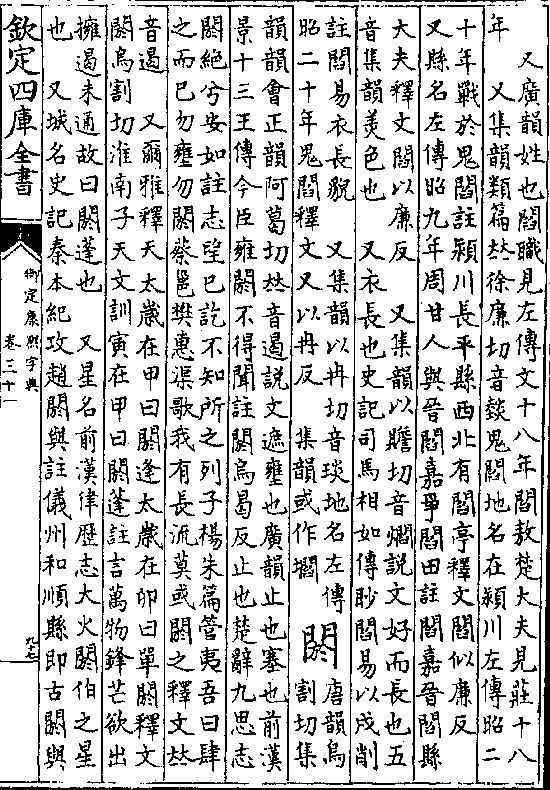 又廣韻姓也閻職見左傳文十八年閻敖楚大夫見莊十八
年　又集韻類篇𠀤徐廉切音燅鬼閻地名在潁川左傳昭二
十年戰於鬼閻註潁川長平縣西北有閻亭釋文閻似廉反
又縣名左傳昭九年周甘人與晉閻嘉爭閻田註閻嘉晉閻縣
大夫釋文閻以廉反　又集韻以贍切音爓說文好而長也五
音集韻美色也　又衣長也史記司馬相如傳眇閻易以戌削
註閻易衣長貌　又集韻以冉切音琰地名左傳
昭二十年鬼閻釋文又以冉反　集韻或作壛
閼
唐韻烏
割切集
韻韻會正韻阿葛切𠀤音遏說文遮壅也廣韻止也塞也前漢
景十三王傳今臣雍閼不得聞註閼烏曷反止也楚辭九思志
閼絕兮安如註志望已訖不知所之列子楊朱篇管夷吾曰肆
之而已勿壅勿閼蔡邕樊惠渠歌我有長流莫或閼之釋文𠀤
音遏　又爾雅釋天太歲在甲曰閼逢太歲在卯曰單閼釋文
閼烏割切淮南子天文訓寅在甲曰閼蓬註言萬物鋒芒欲出
擁遏未通故曰閼蓬也　又星名前漢律歷志大火閼伯之星
也　又城名史記秦本紀攻趙閼與註儀州和順縣即古閼與
欽定四庫全書
御定康熙字典
卷三十一